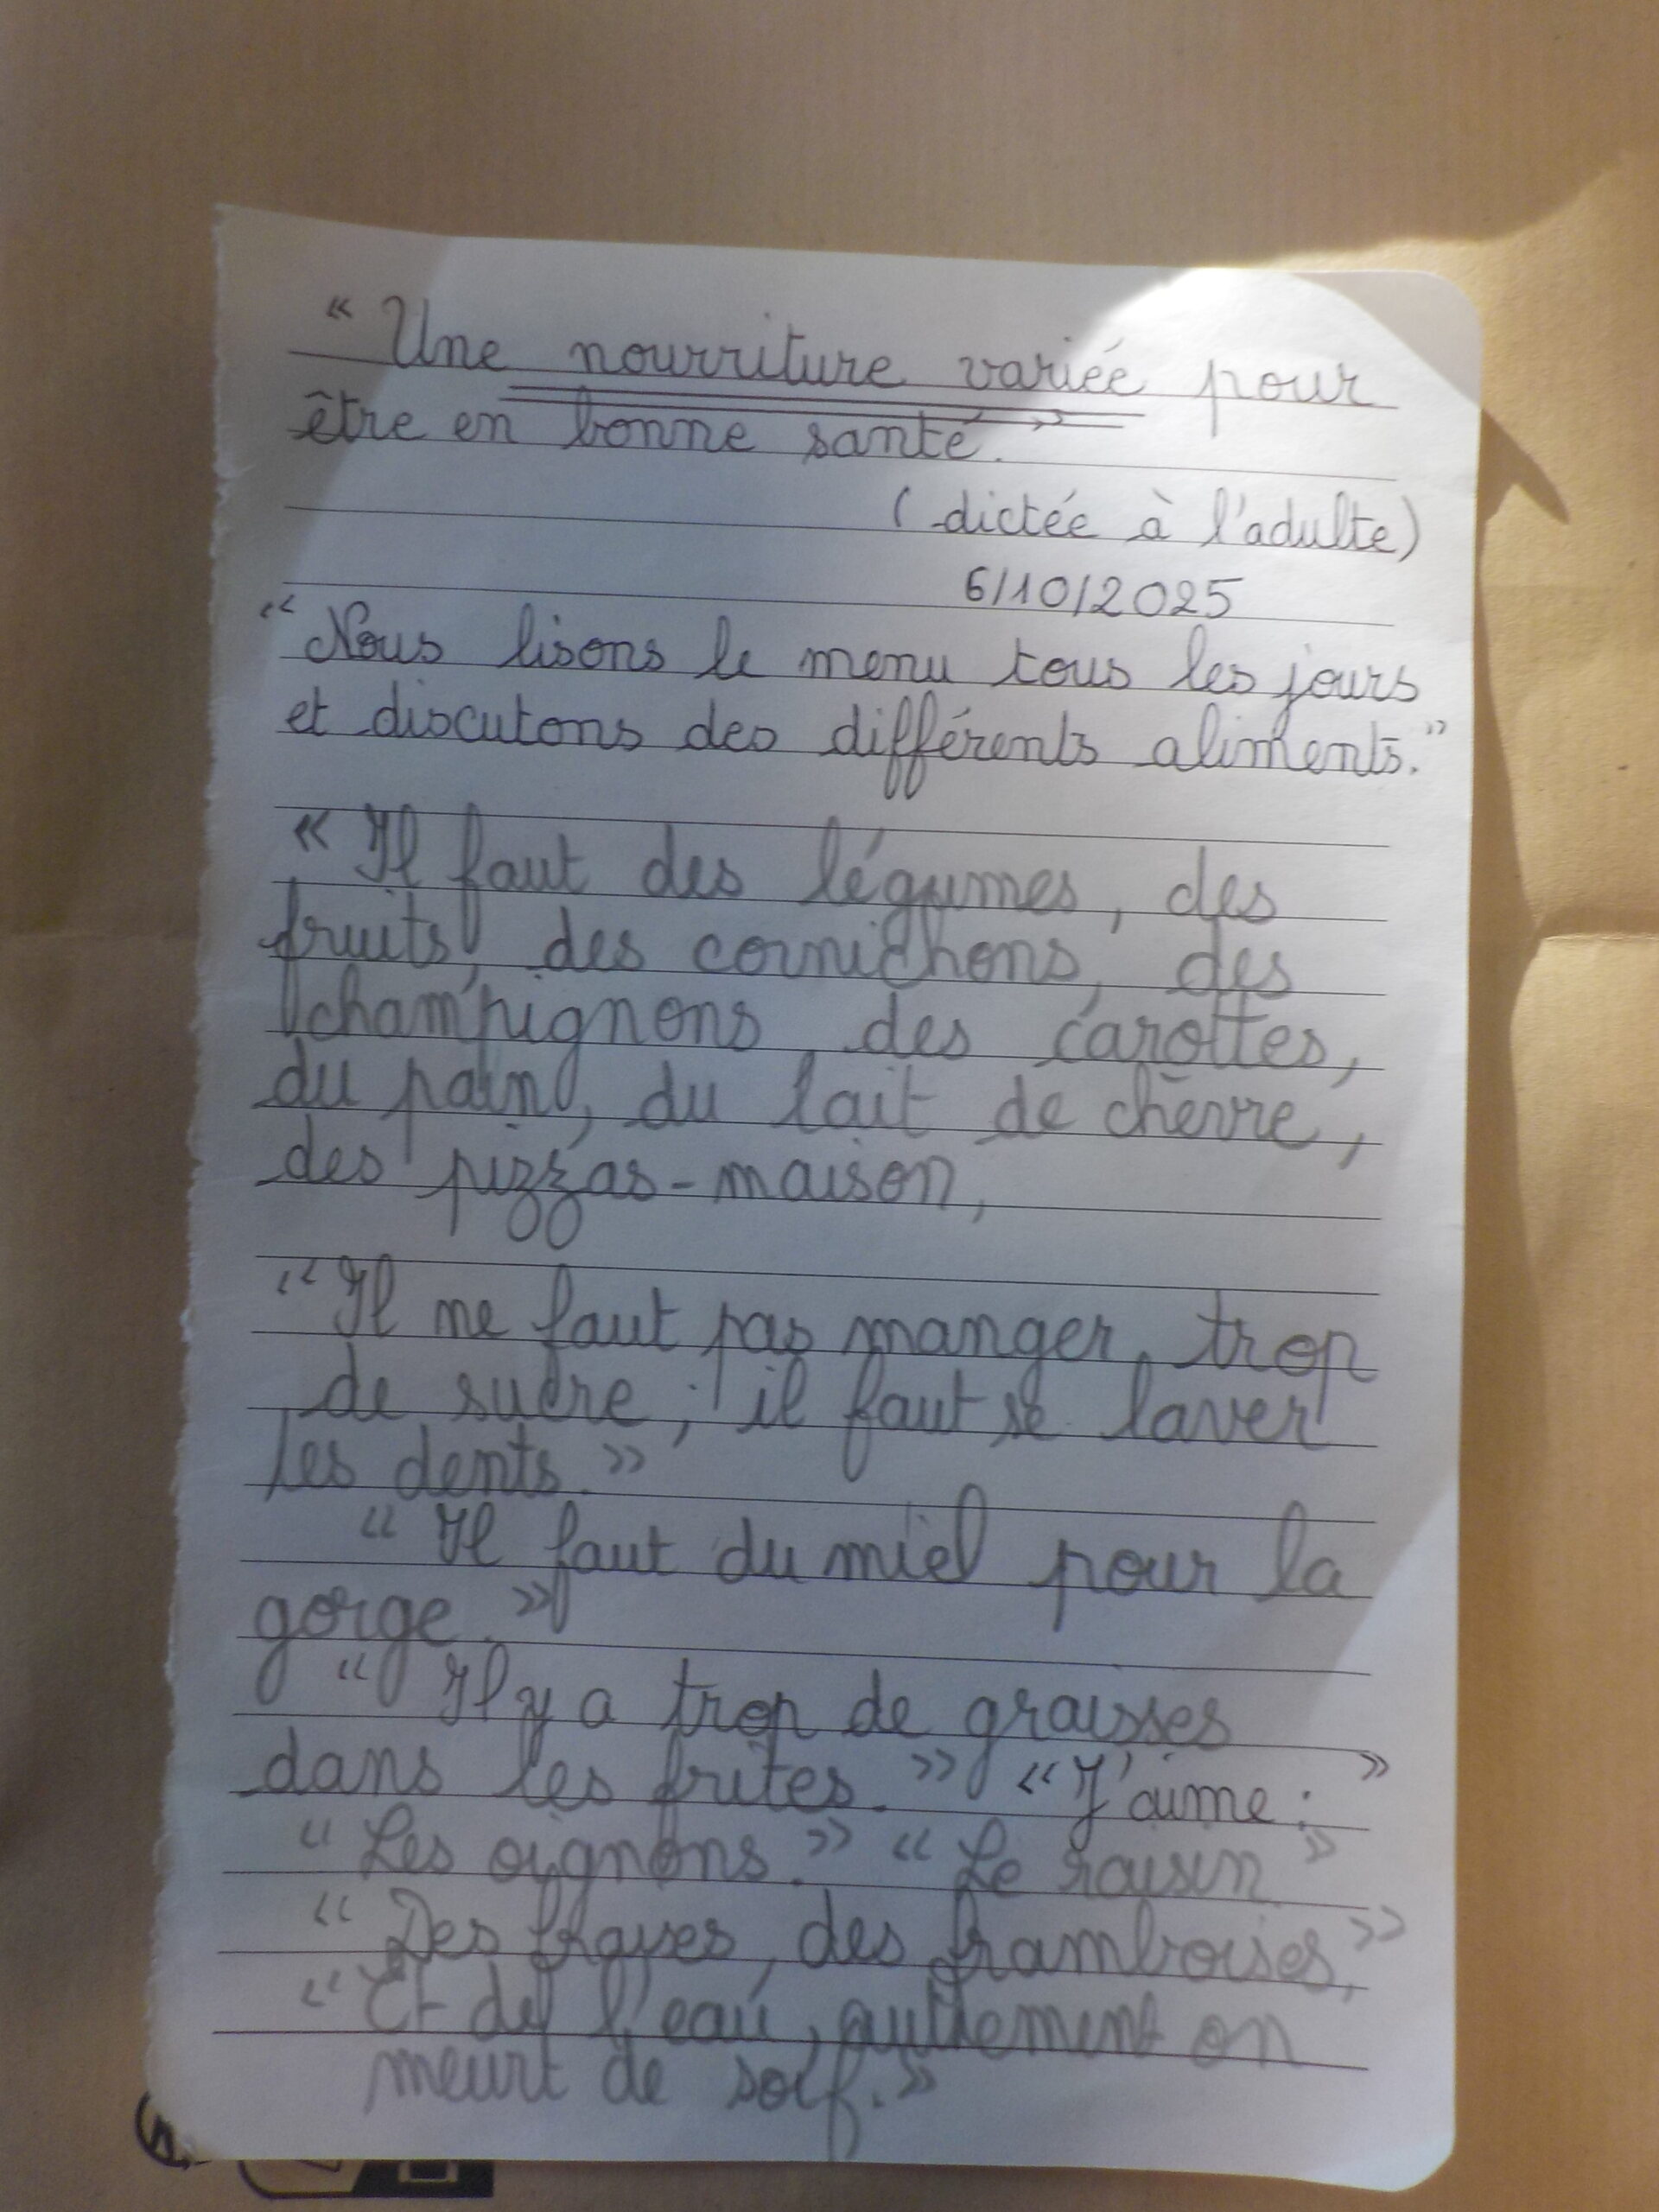 « Une nourriture variée pour
être en bonne santé. »
(dictée à l'adulte)
6/10/2025
“ Nous lisons le menu tous les jours
et discutons des différents aliments. ”
« Il faut des légumes, des
fruits, des cornichons, des
champignons, des carottes,
du pain, du lait de chèvre,
des pizzas-maison,
“ Il ne faut pas manger trop
de sucre ; il faut se laver
les dents. »
“ Il faut du miel pour la
gorge. »
“ Il y a trop de graisses
dans les frites. » « J'aime : »
“ Les oignons. » « Le raisin. »
“ Des fraises, des framboises, »
“ Et de l'eau, autrement on
meurt de soif. »